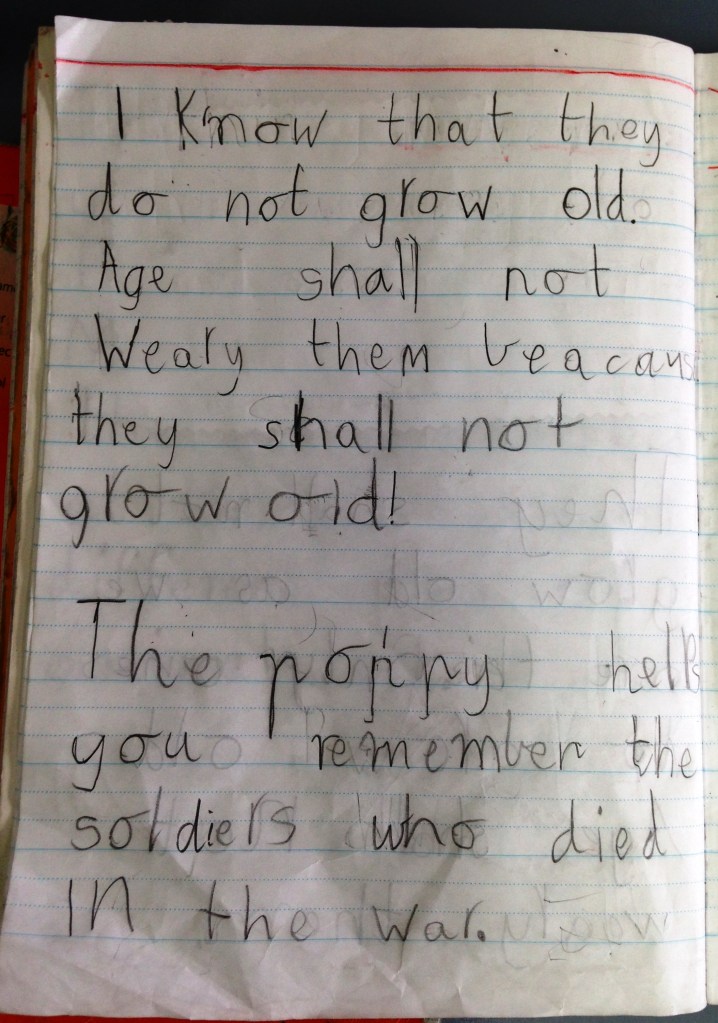 I Know that they
do not grow old.
Age shall not
Weary them beacaus
they shall not
grow old!
The poppy helps
you remember the
soldiers who died
In the war.